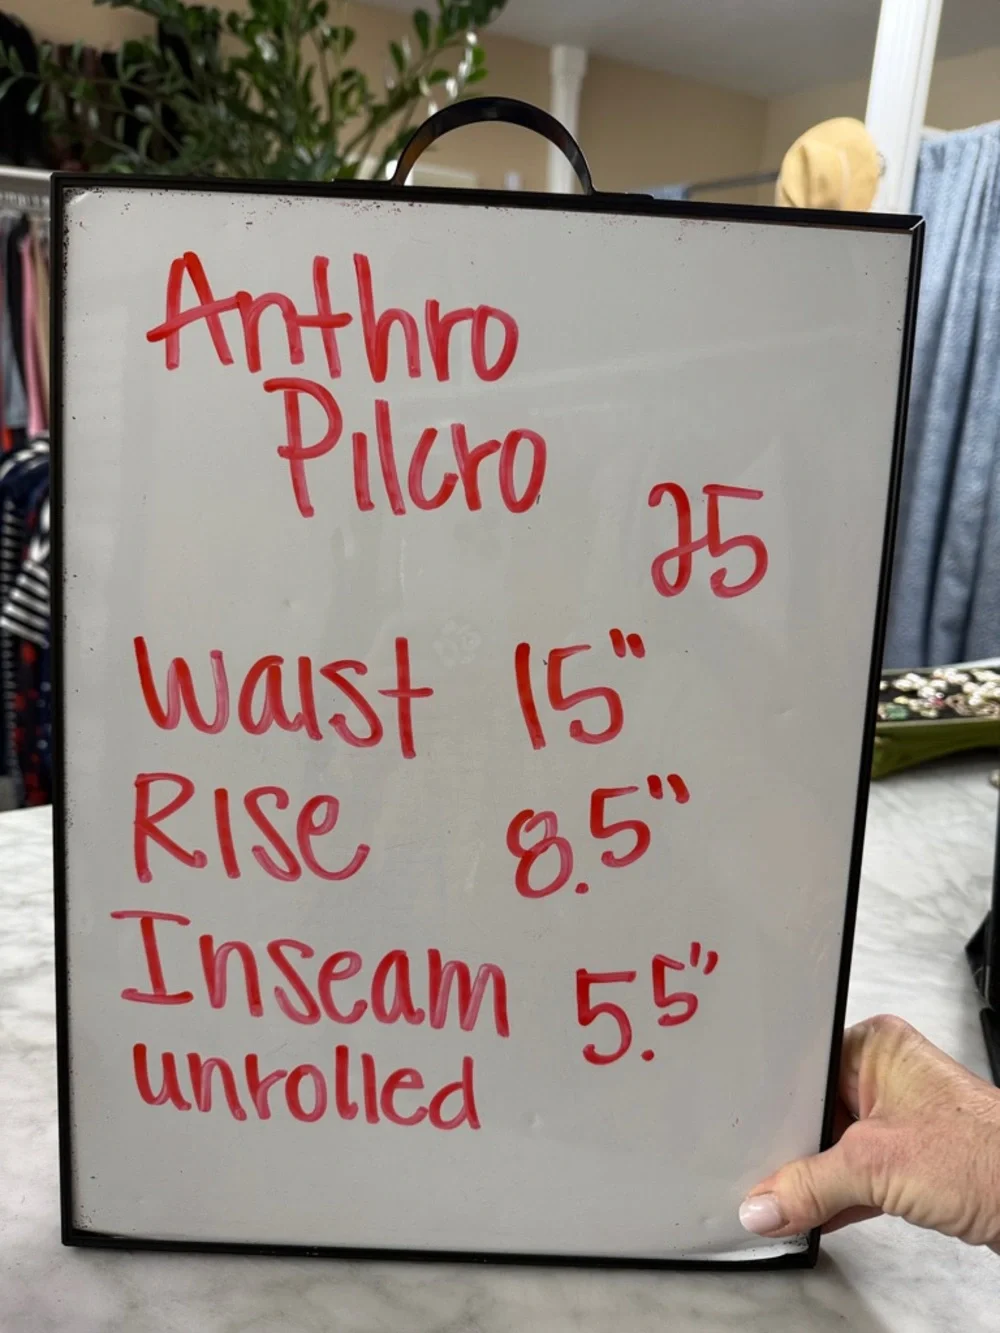 Anthro
Pilcro
25
Waist 15"
Rise 8.5"
Inseam 5.5"
unrolled